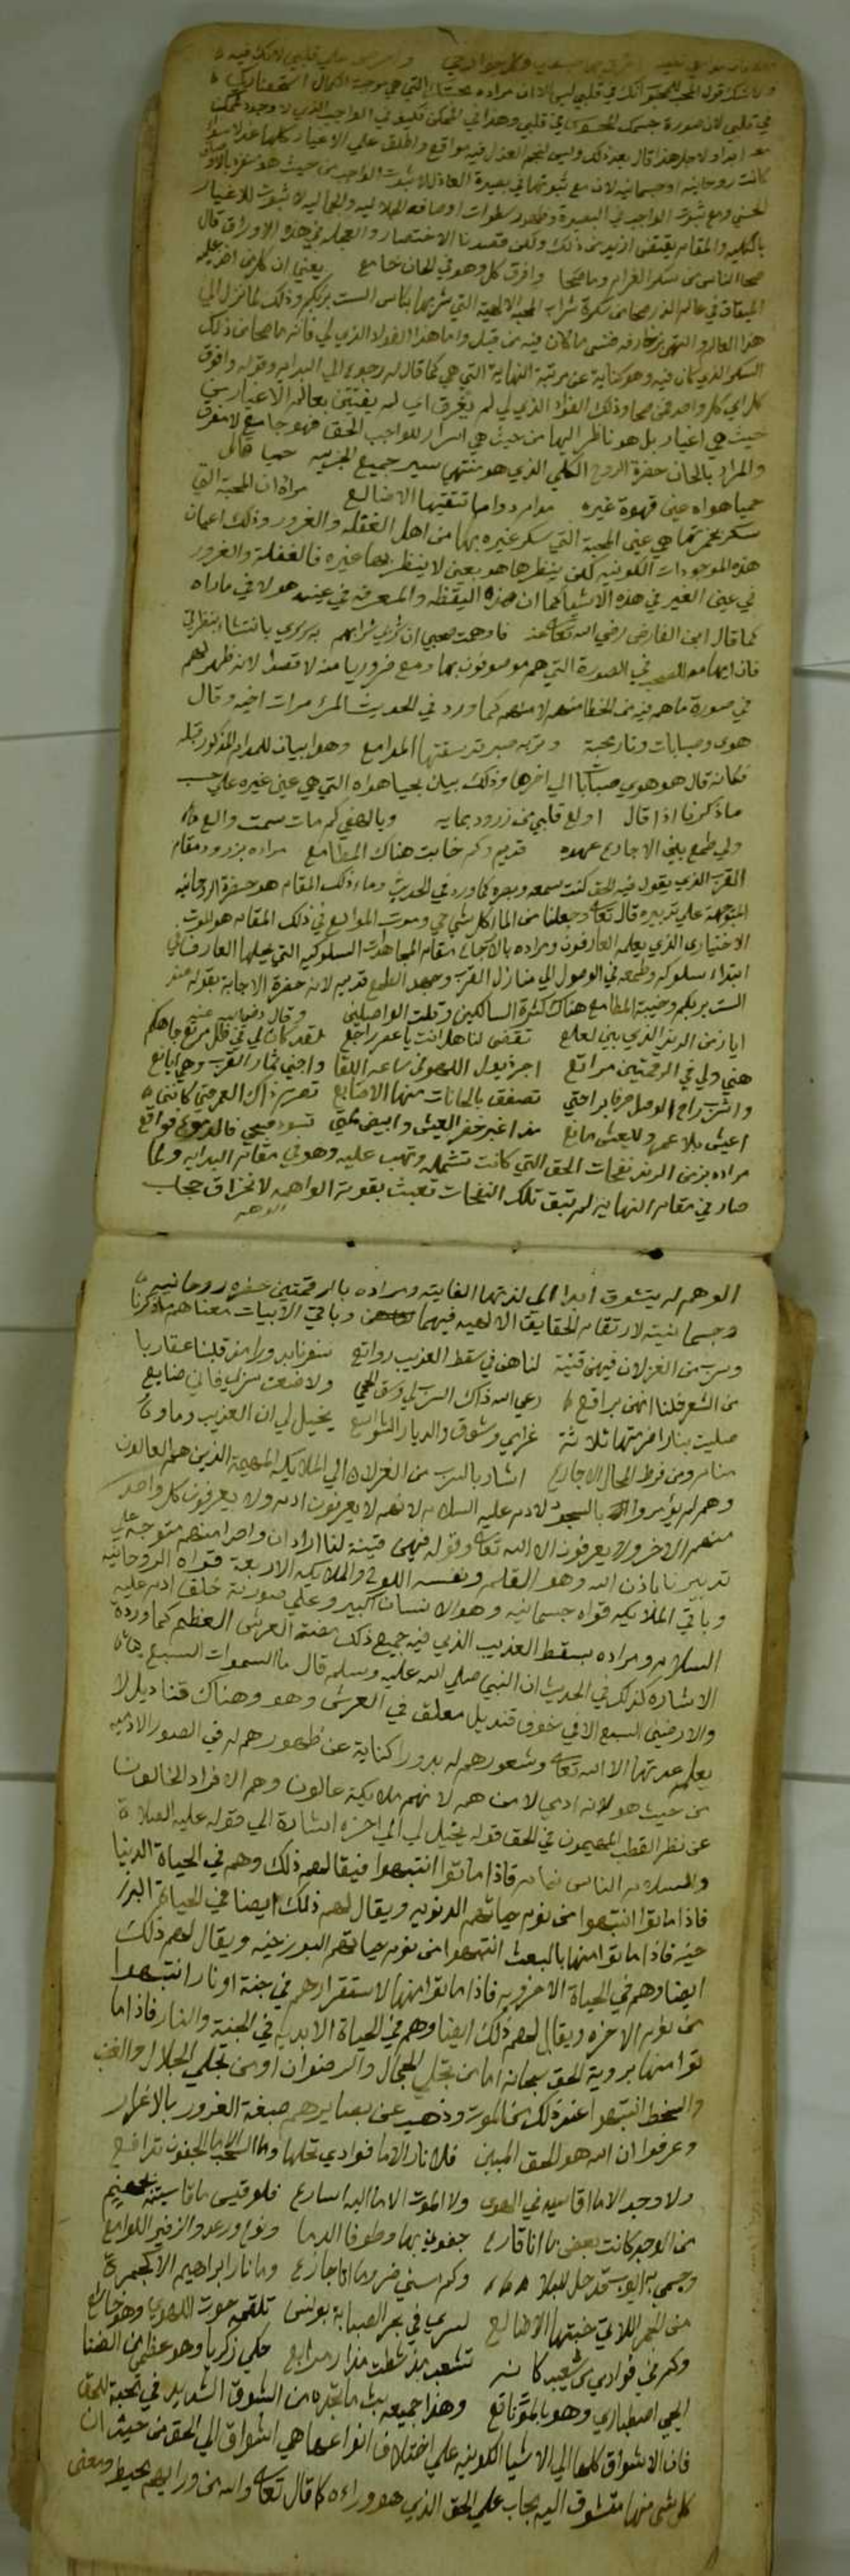 في قلبي لان صورة جسمك المحسوس في قلبي وهذا في الممكن فكيف في الواجب الذي لا وجود لممكن
معه ابدا ولاجل هذا قال بعد ذلك وليس لنجم العذل فيه مواقع واطلق علي الاغيار كلها عذلا سوا
كانت روحانية او جسمانية لان مع ثبوتها في بصيرة العاذل لا ثبوت للواجب من حيث هو
الحسني ومع ثبوت الواجب في البصيرة وظهور سطوات اوصافه الجلاليه والجماليه لا ثبوت للاغيار
بالكليه والمقام يقتضي ازيد من ذلك ولكن قصدنا الاختصار والعجله في هذه الاوراق قال
صحا الناس من سكر الغرام وما صحا وافرق كل وهو في الحان جامع يعني ان كل من اخذ عليه
الميثاق في عالم الذر صحا من سكرة شراب المحبة الالهية التي شربها بكاس الست بربكم وذلك لما نزل الي
هذا العالم والتهي بزخارفه فنسي ما كان فيه من قبل واما هذا الفواد الذي لي فانه ما صحا من ذلك
السكر الذي كان فيه وهو كناية عن مرتبة النهاية التي هي كما قال له رجوع الي البدايه وقوله وافرق
كل اي كل واحد ممن صحا وذلك الفؤاد الذي لي لم يفرق اي لم يفتتن بعالم الاغيار من
حيث هي اغيار بل هو ناظر اليها من حيث هي اسرار للواجب الحق فهو جامع لا مفرق
والمراد بالحان حضرة الروح الكلي الذي هو منتهي سير جميع الجزييه حميا قال
حميا هواه عين قهوة غيره مدام دواما تقتنيها الاضالع مراده ان المحبة التي
سكر بخمرتها هي عين المحبة التي سكر غيره بها من اهل الغفله والغرور وذلك اعيان
هذه الموجودات الكونيه لكن ينظرها هو بعين لا ينظر بها غيره فالغفلة والغرور
في عين الغير في هذه الاشيا كما ان هذه اليقظه والمعرفه في عينه هو لا في ما راه
كما قال ابن الفارض رضي الله تعالي عنه فاوهمت صحبي ان شرب شرابهم به سر سري بانتشاء بنظرتي
في صورة ما هم فيه من الخطا منهم لا منه كما ورد في الحديث المرء مراة اخيه وقال
هوي وصبابات ونار محبة وتربة صبر قد سقتها المدامع وهو بيان للمدام المذكور قبله
فكانه قال هو هوي صبابات الي اخرها وذلك بيان لحميا هواه التي هي عين غيره علي حسب
ما ذكرنا اذا قال اولع قلبي من زرود بمايه ويا لهفي كم مات سمت والع
ولي طمع بين الاجارع عهده قديم وكم خابت هناك المطامع مراده بزرود مقام
القرب الذي يقول فيه الحق كنت سمعه وبصره كما ورد في الحديث وماء ذلك المقام هو حضرة الروحانيه
المتوجهة علي تدبيره قال تعالي وجعلنا من الماء كل شي حي وموت المولع في ذلك المقام هو الموت
الاختياري الذي يعلمه العارفون ومراده بالاجارع مقام المجاهدات السلوكيه التي يعلمها العارف في
ابتداء سلوكه وطمعه في الوصول الي منازل القرب وعهد الطمع قديم لانه حضرة الاجابة بقوله
الست بربكم وخيبة المطامع هناك كثرة السالكين وقلت الواصلين وقال رضي الله عنه
ايا زمن الرند الذي بين لعلع تقضي لنا هل انت يا عصر راجع لقد كان لي في ظل مربع جاهكم
هني ولي في الرقمتين مراتع اجر ذيول اللهو في ساعه اللقا واجني ثمار القرب وهي ايانع
واشرب راح الوصل صرفا براحتي تصفق بالحانات منها الاصابع تصرم ذاك العمر حتي كانني
اعيش بلا عمر وللعيش مانع مذ اغبر خضر العيش وابيض لمتي تسود صبحي فالدموع فواقع
مراده بزمن الرند نفحات الحق التي كانت تشمله وتهب عليه وهو في مقام البدايه ولما
صار في مقام النهايه لم تبق تلك النفحات تعبث بقوته الواهمه لانخراق حجاب
الوهم
الوهم له يتشوق ابدا الي لذتها الفايته ومراده بالرقمتين حضره روحانيه
وجسمانيته لارتقام الحقايق الالهيه فيهما وباقي الابيات معناها ما ذكرنا
وسرب من الغزلان فيهن قينة لنا هن في سقط العذيب رواتع سفرنا بدورا مذ قلبنا عقاربا
من الشعر خلنا انهن براقع رعي الله ذاك السرب لي وسقي الحمي ولا ضيعت سربي فاني ضايع
صليت بنار اضرمتها ثلاثة غرامي وشوقي والديار الشواسع يخيل لي ان العذيب وماوه
منام ومن فرط المحال الاجارع اشار بالسرب من الغزلان الي الملايكه المهيمة الذين هم العالون
وهم لم يؤمروا بالسجود لادم عليه السلام لانهم لا يعرفون ادم ولا يعرفون كل واحد
منهم الاخر ولا يعرفون الا الله تعالي وقوله فيهن قينة لنا اراد ان واحدا منهم متوجه علي
تدبيرنا باذن الله وهو القلم ونفسه اللوح والملايكه الاربعة قواه الروحانيه
وباقي الملايكه قواه جسمانيه وهو الانسان الكبير وعلي صورته خلق ادم عليه
السلام ومراده بسقط العذيب الذي فيه جميع ذلك حضة العرش العظيم كما وردة
الاشاره لذلك في الحديث ان النبي صلي الله عليه وسلم قال ما السموات السبع
والارضين السبع الا في جوف قنديل معلق في العرش وهو وهناك قناديل لا
يعلم عدتها الا الله تعالي وشعورهم له بدورا كناية عن ظهورهم له في الصور الادميه
من حيث هو لانه ادمي لا من هم لانهم ملايكة عالون وهم الافراد الخالون
عن نظر القطب المهيمون في الحق قوله يخيل لي الي اخره اشارة الي قوله عليه الصلاة
والسلام الناس نيام فاذا ماتوا انتبهوا فيقال لهم ذلك وهم في الحياة الدنيا
فاذا ماتوا انتبهوا من نوم حياتهم الدنويه ويقال لهم ذلك ايضا في الحياة البرز
خيه فاذا ماتوا منها بالبعث انتبهوا من نوم حياتهم البرزخيه ويقال لهم ذلك
ايضا وهم في الحياة الاخرويه فاذا ماتوا منها لاستقرارهم في جنة او نار انتبهوا
من نوم الاخره ويقال لهم ذلك ايضا وهم في الحياة الابديه في الجنة والنار فاذا ما
توا منها بروية الحق سبحانه اما من تجلي الجمال والرضوان او من تجلي الجلال والغضب
والسخط انتبهوا عند ذلك من الموت وذهب عن بصايرهم صبغة الغرور بالاغيار
وعرفوا ان الله هو الحق المبين فلا نار الا ما فوادي محلها ولا السحب الا ما الجفون تدافع
ولا وجد الا ما اقاسيه في الهوي ولا الموت الا ما اليه اسارع فلو قيس ما قاسيته بجهنم
من الوجد كانت بعض ما انا قارع جفوني بها وطوفا الدما ونوح ورعد والزفير اللوامع
وجسمي به ايوب قد حل للبلا وكم مسني ضر وما انا جازع وما نار ابراهيم الا كجمرة
من الجمر اللاتي خبتها الاضالع لسري في بحر الصبابة يونس تلقمه حوت الهوي وهو خاشع
وكم في فوادي من شعيب كابه تشعب مذ شطت مزار مرابع حكي زكريا وهو عظمي من الضنا
ايحيي اصطباري وهو بالموت ناقع وهذا جميعه بث ما تجده من الشوق الشديد في محبة الحق
فان الاشواق كلها الي الاشيا الكونيه علي اختلاف انواعها هي اشواق الي الحق من حيث ان
كل شي منها متشوق اليه حجاب علي الحق الذي هو وراءه كما قال تعالي والله من ورايهم محيط ومعني